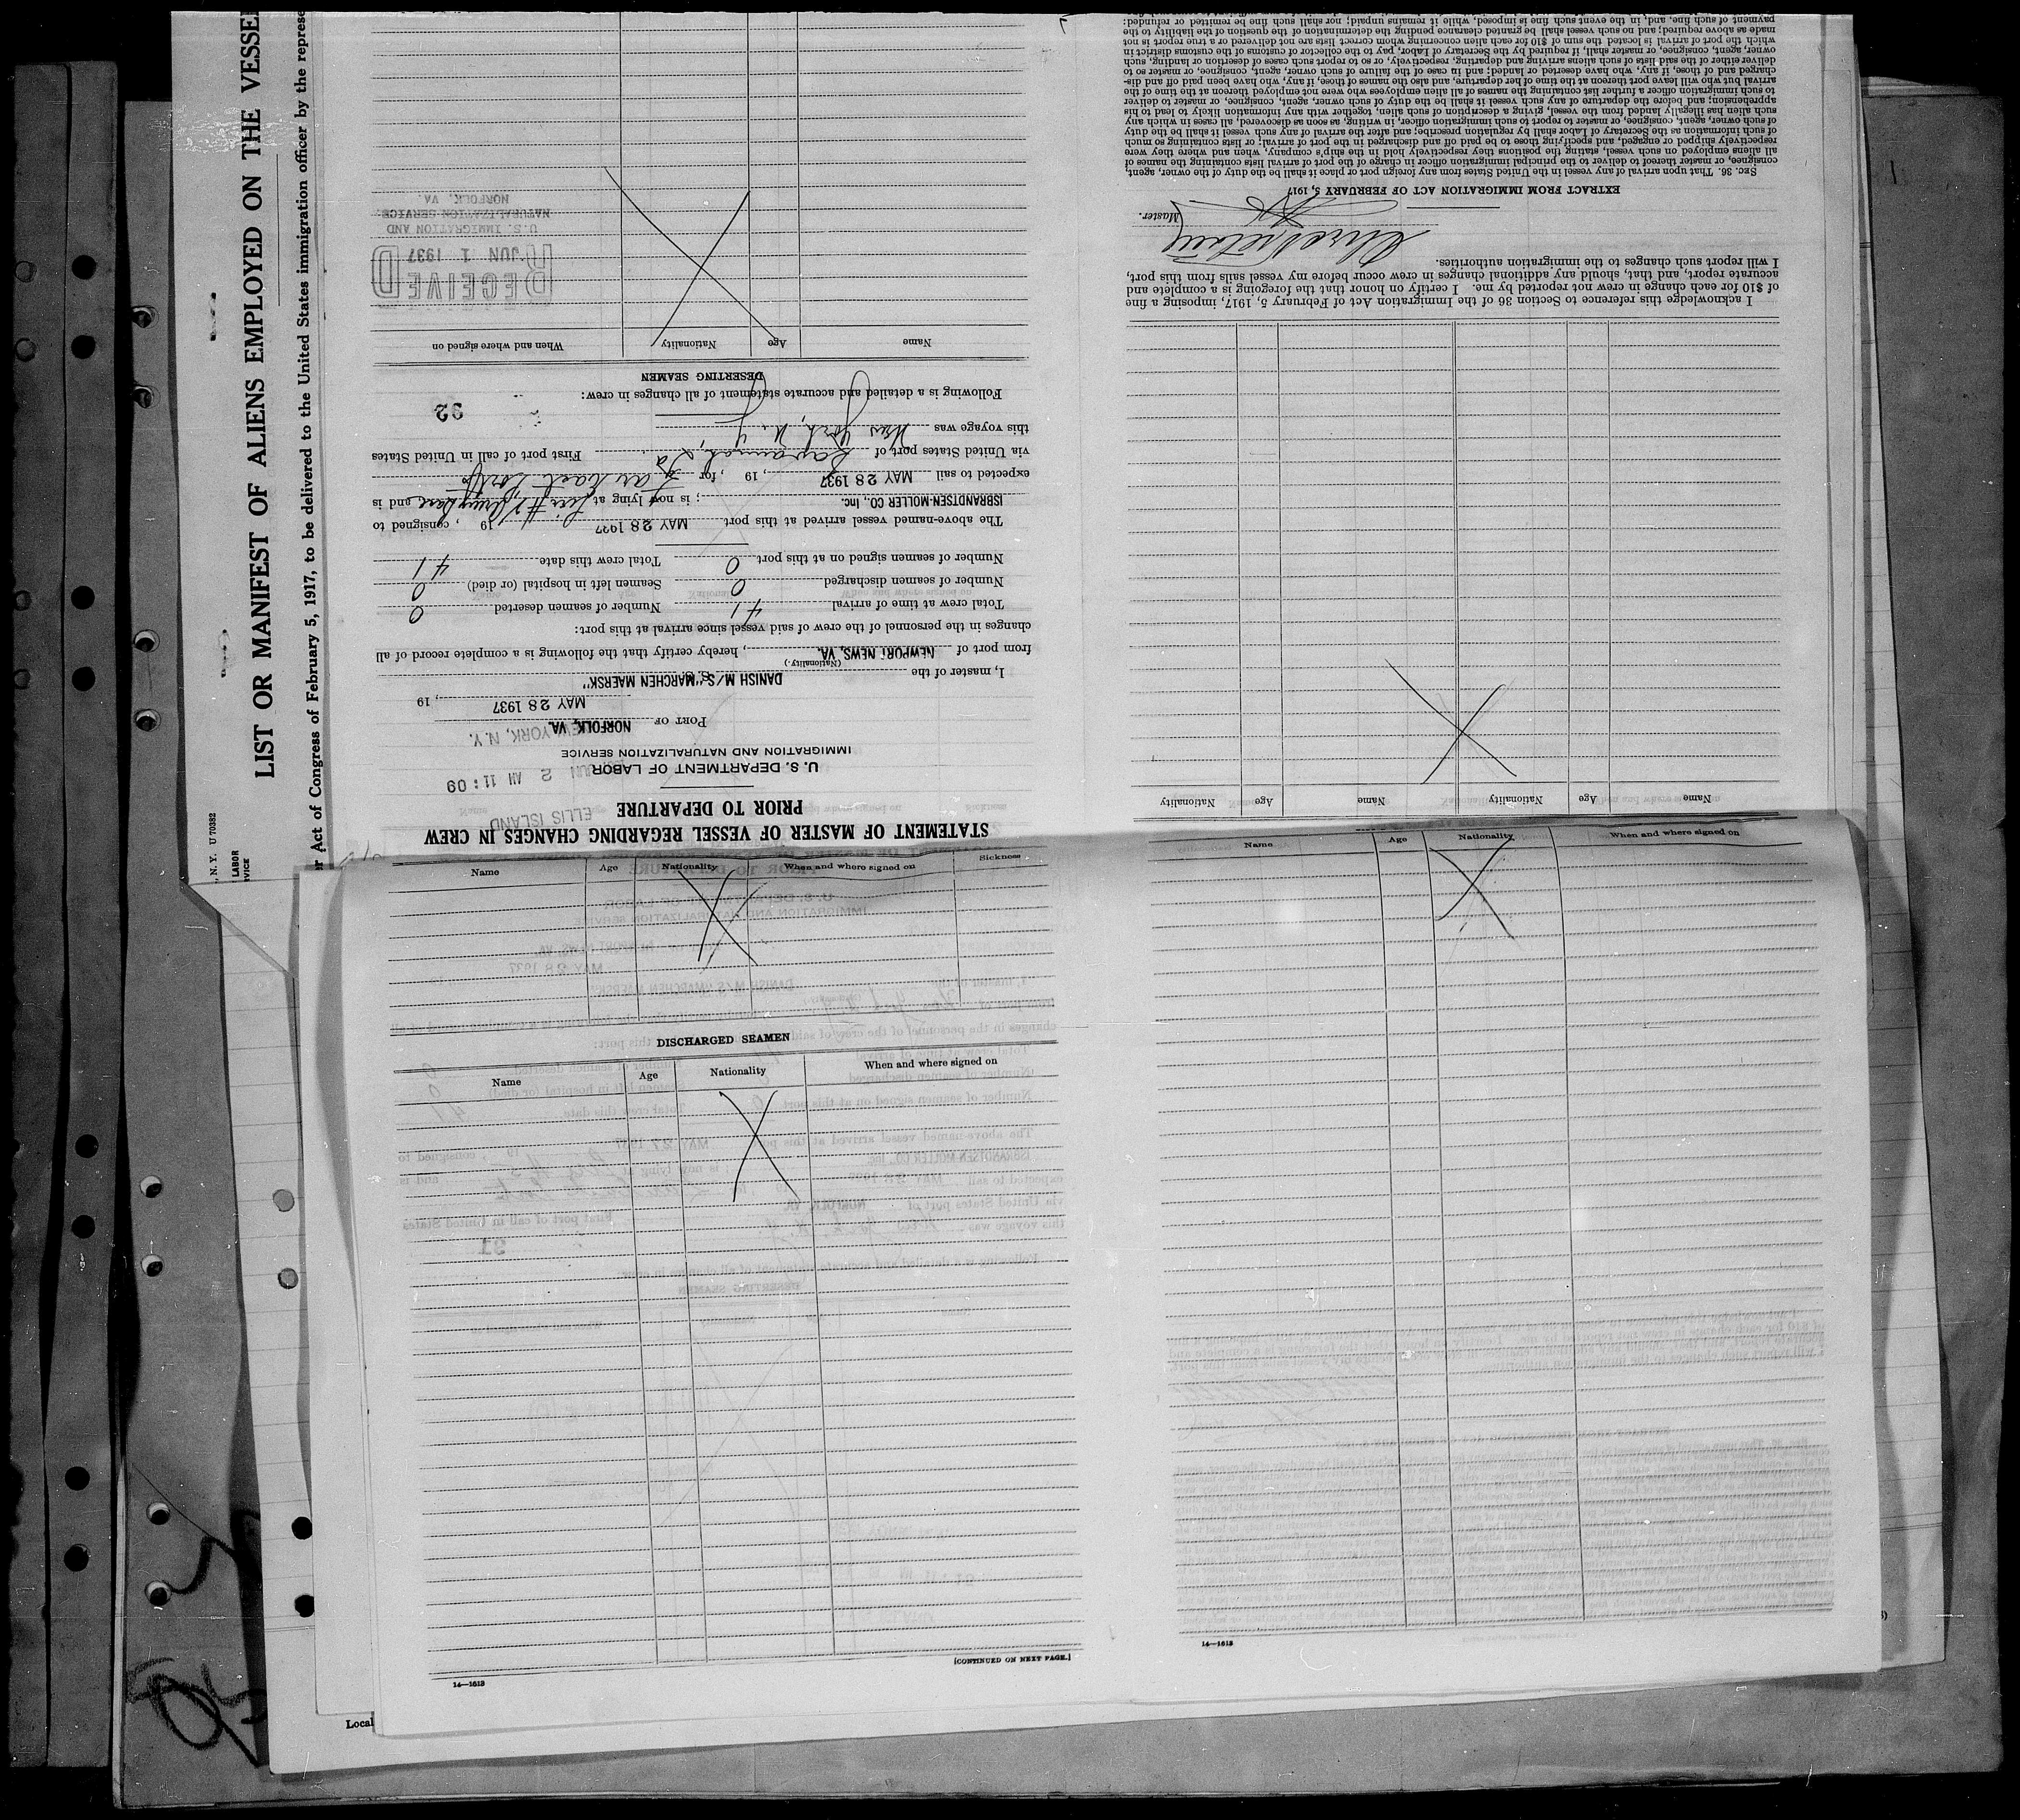 LIST OR MANIFEST OF ALIENS EMPLOYED ON THE VESSE
er Act of Congress of February 5, 1917, to be delivered to the United States immigration officer by the represe
, N. Y. U 70382
LABOR
RVICE
STATEMENT OF MASTER OF VESSEL REGARDING CHANGES IN CREW
PRIOR TO DEPARTURE
ELLIS ISLAND
JUN 2 AM 11:09
U. S. DEPARTMENT OF LABOR
IMMIGRATION AND NATURALIZATION SERVICE
NEW YORK, N.Y.
PORT OF NORFOLK, VA.
MAY 28 1937, 19
I, master of the DANISH M/S "MARCHEN MAERSK"
(Nationality.)
from port of NEWPORT NEWS, VA., hereby certify that the following is a complete record of all
changes in the personnel of the crew of said vessel since arrival at this port:
Total crew at time of arrival 41 Number of seamen deserted 0
Number of seamen discharged 0 Seamen left in hospital (or died) 0
Number of seamen signed on at this port 0 Total crew this date 41
The above-named vessel arrived at this port MAY 28 1937 19, consigned to
ISBRANDTSEN-MOLLER CO., Inc.; is now lying at and is
expected to sail MAY 28 1937, 19, for Far East Ports
via United States port of Savannah, Ga. First port of call in United States
this voyage was New York, N.Y.
32
Following is a detailed and accurate statement of all changes in crew:
DESERTING SEAMEN
Name Age Nationality When and where signed on
RECEIVED
JUN 1 1937
U. S. IMMIGRATION AND
NATURALIZATION SERVICE
NORFOLK, VA.
Name Age Nationality Name Age Nationality
I acknowledge this reference to Section 36 of the Immigration Act of February 5, 1917, imposing a fine
of $10 for each change in crew not reported by me. I certify on honor that the foregoing is a complete and
accurate report, and that, should any additional changes in crew occur before my vessel sails from this port,
I will report such changes to the immigration authorities.
Master.
EXTRACT FROM IMMIGRATION ACT OF FEBRUARY 5, 1917
SEC. 36. That upon arrival of any vessel in the United States from any foreign port or place it shall be the duty of the owner, agent,
consignee, or master thereof to deliver to the principal immigration officer in charge of the port of arrival lists containing the names of
all aliens employed on such vessel, stating the positions they respectively hold in the ship's company, when and where they were
respectively shipped or engaged, and specifying those to be paid off and discharged in the port of arrival; or lists containing so much
of such information as the Secretary of Labor shall by regulation prescribe; and after the arrival of any such vessel it shall be the duty
of such owner, agent, consignee, or master to report to such immigration officer, in writing, as soon as discovered, all cases in which any
such alien has illegally landed from the vessel, giving a description of such alien, together with any information likely to lead to his
apprehension; and before the departure of any such vessel it shall be the duty of such owner, agent, consignee, or master to deliver
to such immigration officer a further list containing the names of all alien employees who were not employed thereon at the time of the
arrival but who will leave port thereon at the time of her departure, and also the names of those, if any, who have been paid off and dis-
charged and of those, if any, who have deserted or landed; and in case of the failure of such owner, agent, consignee, or master so to
deliver either of the said lists of such aliens arriving and departing, respectively, or so to report such cases of desertion or landing, such
owner, agent, consignee, or master shall, if required by the Secretary of Labor, pay to the collector of customs of the customs district in
which the port of arrival is located the sum of $10 for each alien concerning whom correct lists are not delivered or a true report is not
made as above required; and no such vessel shall be granted clearance pending the determination of the question of the liability to the
payment of such fine, and, in the event such fine is imposed, while it remains unpaid; nor shall such fine be remitted or refunded:
Name Age Nationality When and where signed on Sickness
DISCHARGED SEAMEN
Name Age Nationality When and where signed on
[CONTINUED ON NEXT PAGE.]
14—1613
Name Age Nationality When and where signed on
14—1613
Local